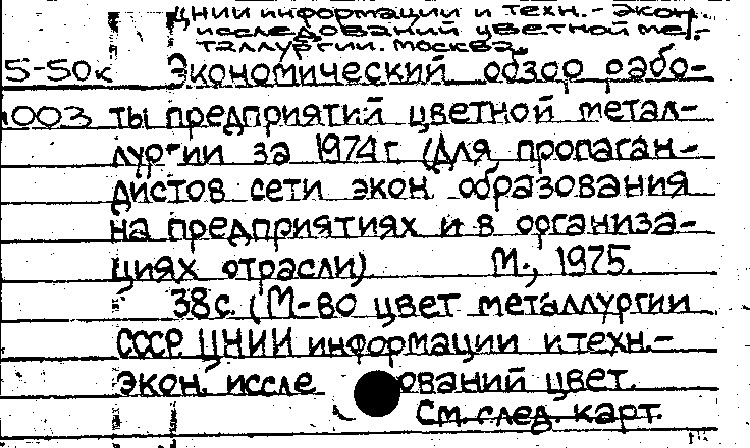 ЦНИИ информации и техн.- экон.
исследований цветной ме-
таллургии. Москва.
5-50к Экономический обзор рабо-
1003 ты предприятий цветной метал-
лургии за 1974 г. (Для пропаган-
дистов сети экон. образования
на предприятиях и в организа-
циях отрасли) М., 1975.
38 с. (М-во цвет металлургии
СССР. ЦНИИ информации и техн.-
экон. иссле ований цвет.
См. след. карт.